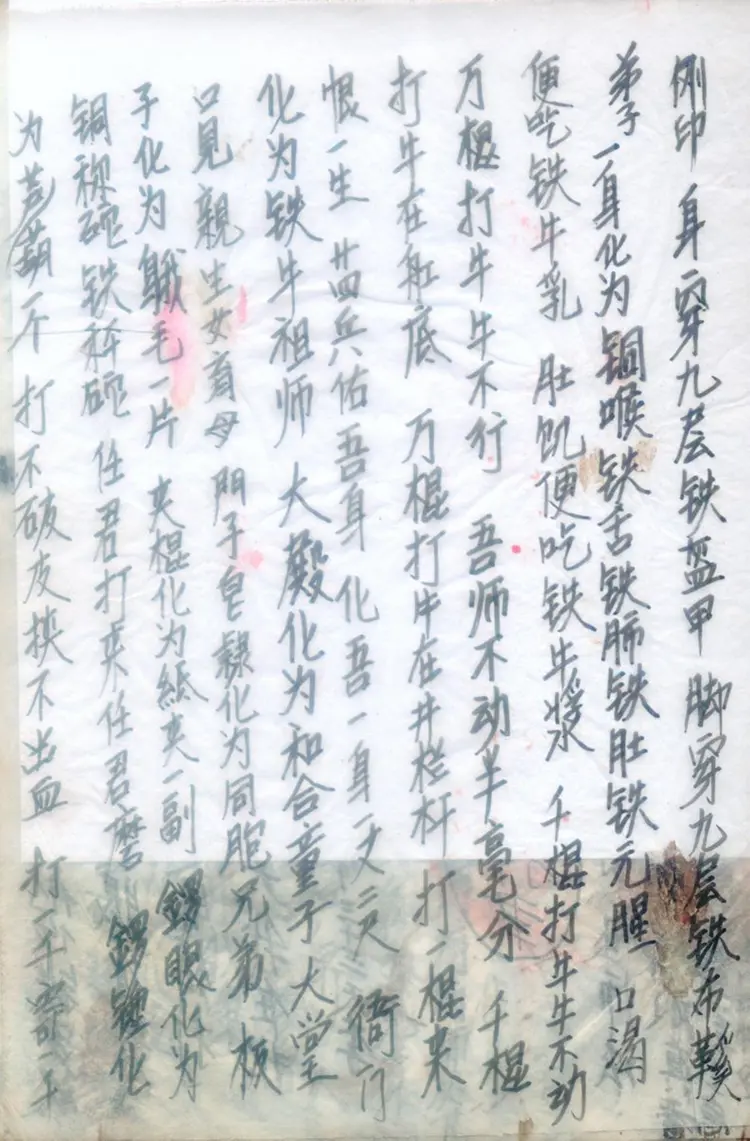 侧印 身穿九层铁盔甲 脚穿九层铁布鞋
弟子一身化为铜喉铁舌铁肺铁肚铁元腥 口渴
便吃铁牛乳 肚饥便吃铁牛浆 千棍打牛牛不动
万棍打牛牛不行 吾师不动半毫分 千棍
打牛在缸底 万棍打牛在井栏杆 打一棍来
恨一生 廿四兵佑吾身 化吾一身丈二尺 衙门
化为铁牛祖师 大殿化为和合童子 大堂
口見親生女育母 門子皂隸化为同胞兄弟 板
子化为鹅毛一片 夹棍化为紙夹一副 鑼眼化为
铜秤砣铁秤砣 任君打来任君磨 鑼锤化
为葫芦一个 打不破皮挨不出血 打一千